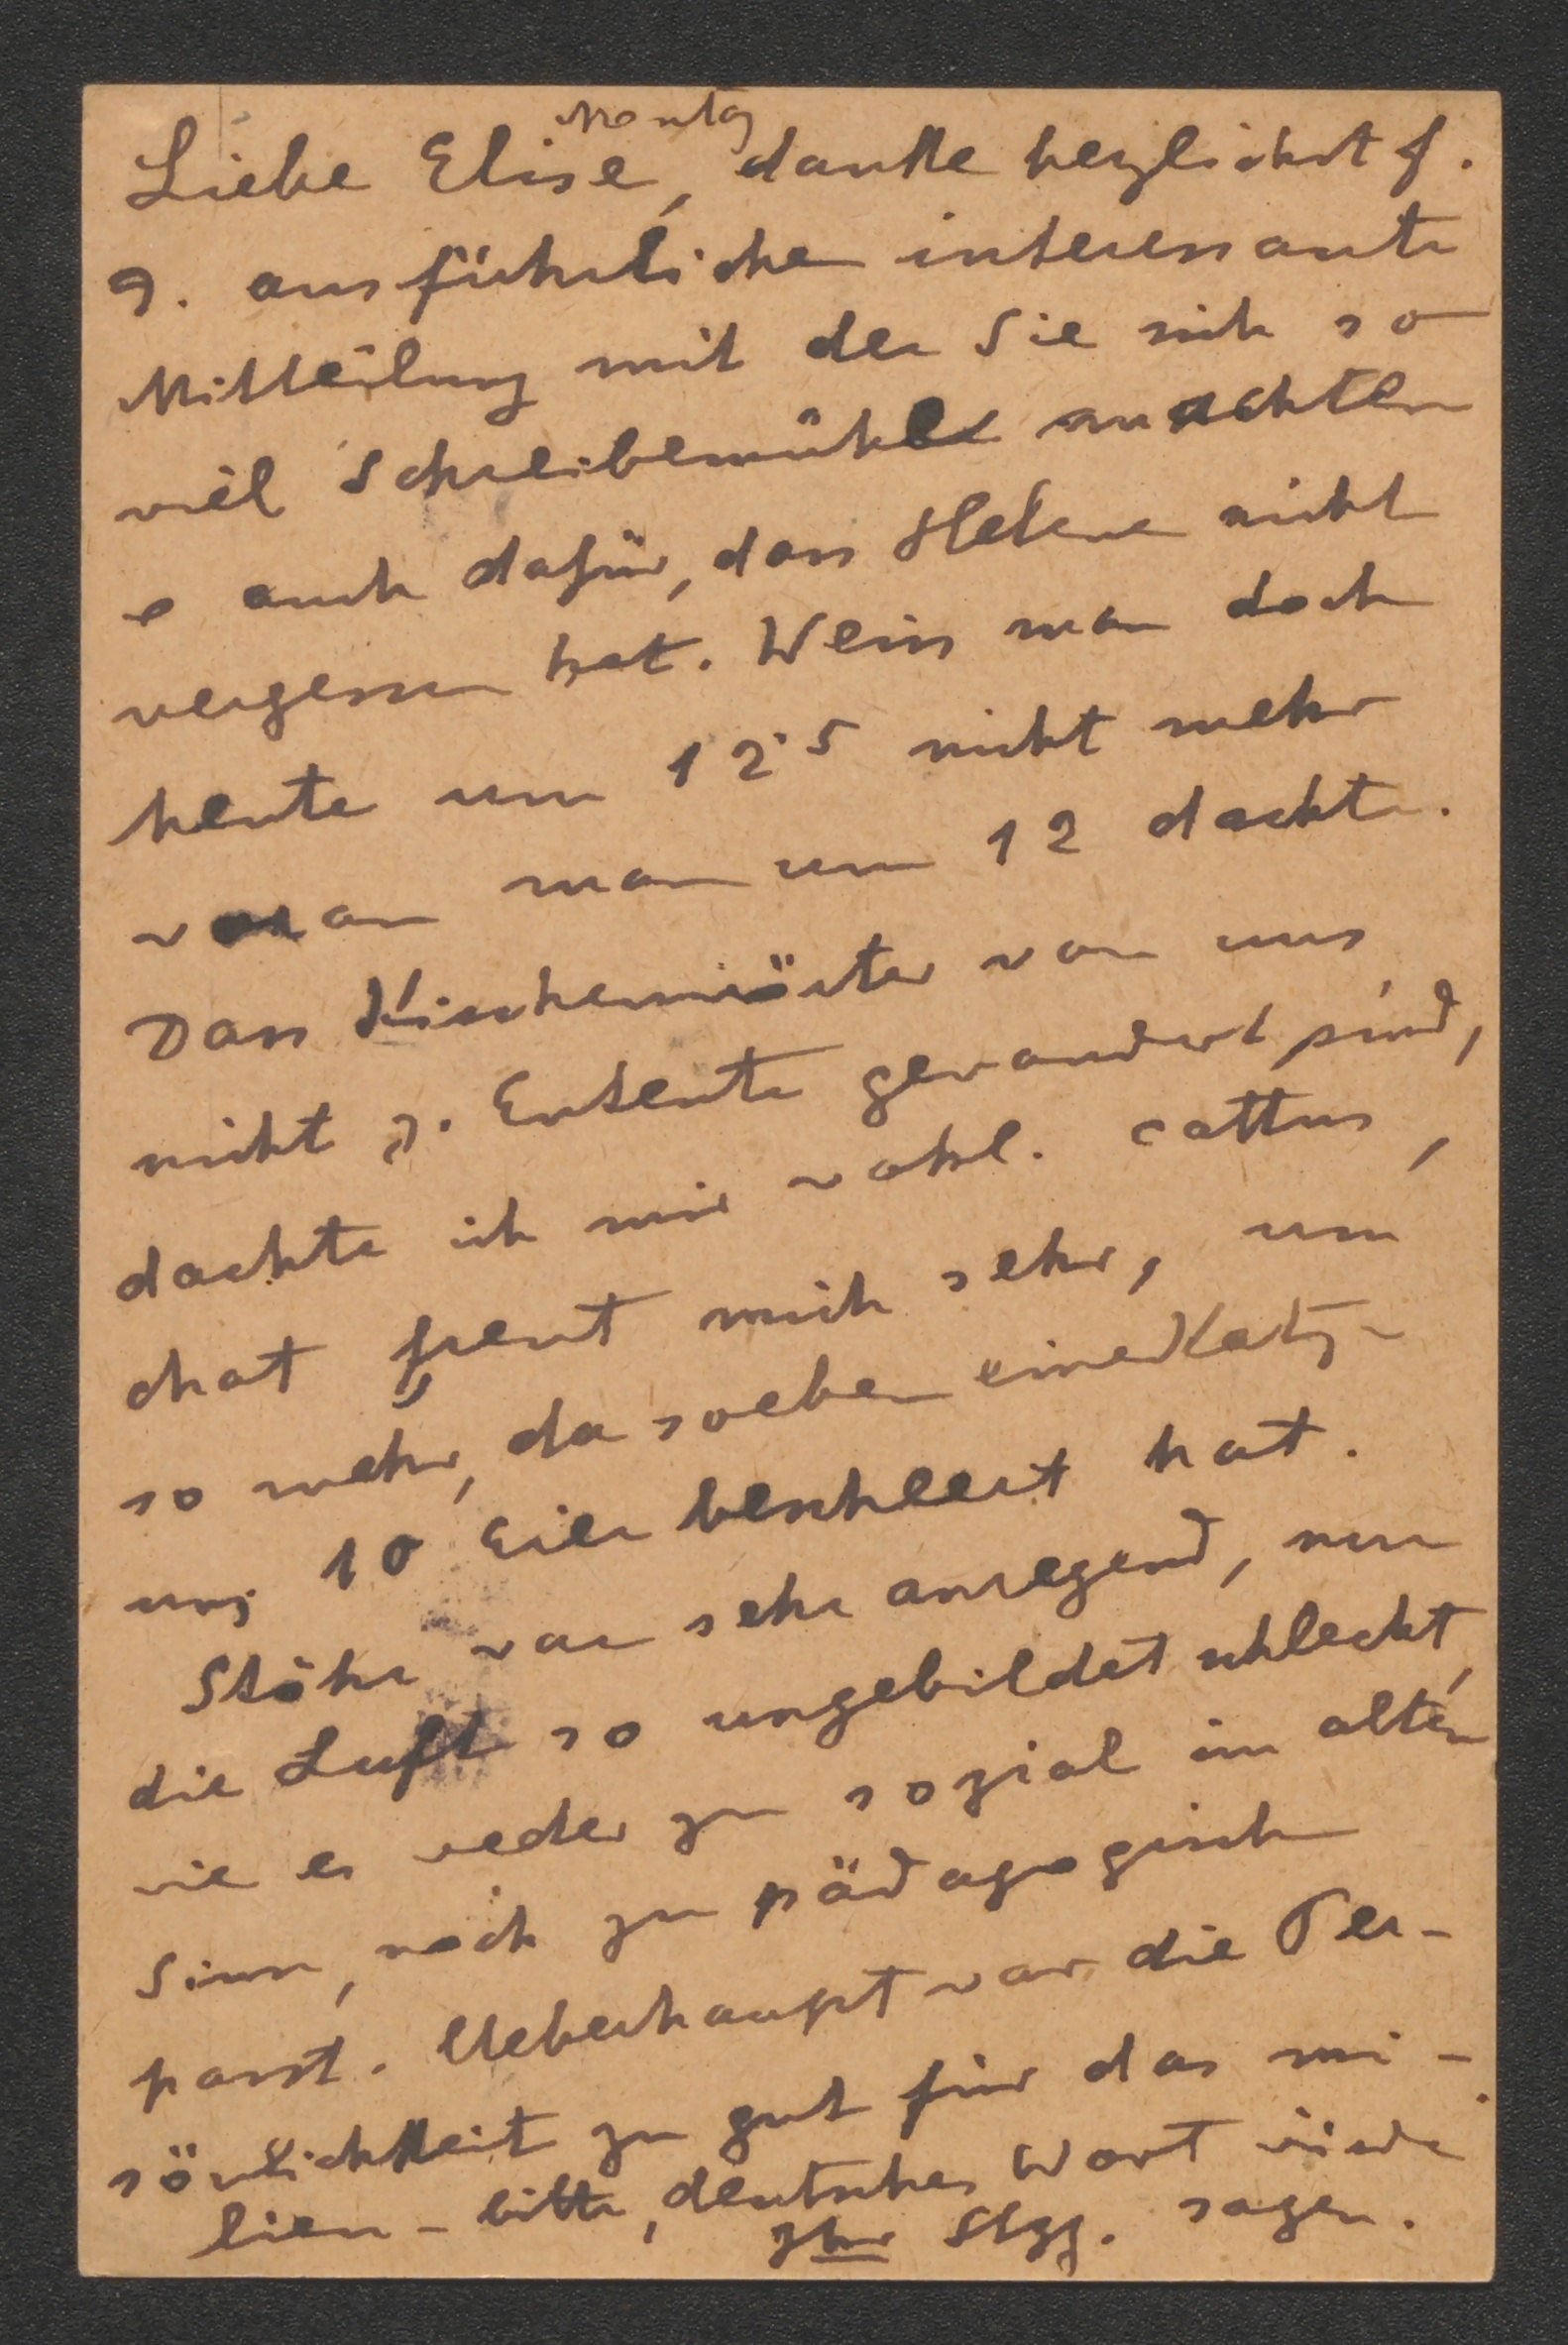 Montag
Liebe Elise, danke herzlichst f.
g. ausführliche interessante
Mitteilung mit der Sie sich so
viel Schreibemühe machten
u auch dafür, dass Helene nicht
vergessen hat. Weiss man doch
heute um 12·5 nicht mehr
woran man um 12 dachte.
Dass Kirchenwörter von uns
nicht z. Entente gewandert sind,
dachte ich mir wohl. cattus,
chat freut mich sehr, um
so mehr, da soeben eine Katze
uns 10 Eier bescheert hat.
Stöhr war sehr anregend, nur
die Luft so ungebildet schlecht,
wie es weder zu sozial im alten
Sinn, noch zu pädagogisch
passt. Ueberhaupt war die Per-
sönlichkeit zu gut für das mi-
lieu - bitte, deutsches Wort
sagen.
Ihr